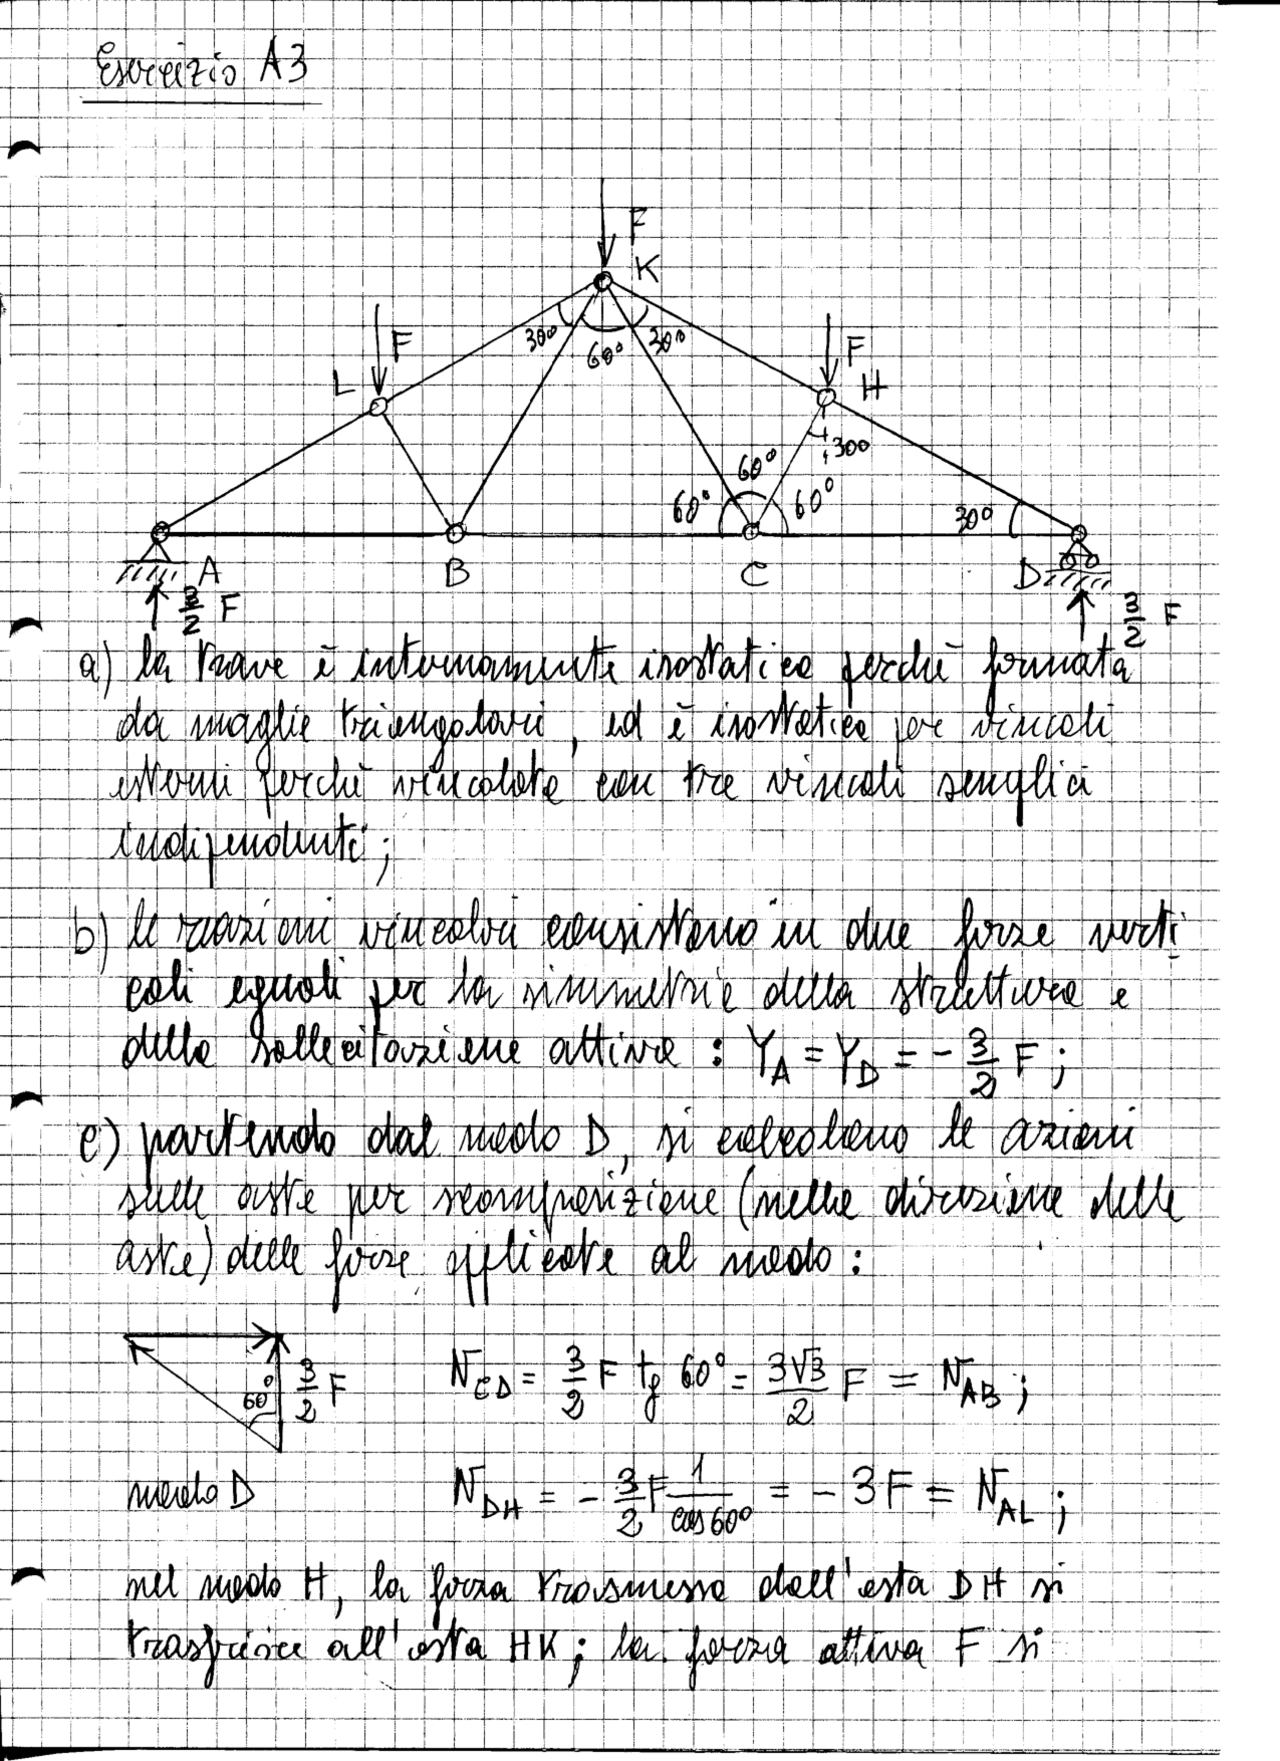 Esercizio A3
F
K
30°
60°
30°
F
L
F
H
30°
60°
60°
60°
30°
A
B
C
D
3/2 F
3/2 F
a) la trave è internamente isostatica perché formata
da maglie triangolari, ed è isostatica per vincoli
esterni perché vincolata con tre vincoli semplici
indipendenti;
b) le reazioni vincolari consistono in due forze verti
cali eguali per la simmetria della struttura e
della sollecitazione attiva : Y_A = Y_D = - 3/2 F ;
c) partendo dal nodo D, si calcolano le azioni
sulle aste per scomposizione (nella direzione delle
aste) delle forze applicate al nodo :
60°
3/2 F
N_CD = 3/2 F tg 60° = 3√3/2 F = N_AB ;
nodo D
N_DH = - 3/2 F 1/cos 60° = - 3F = N_AL ;
nel nodo H, la forza trasmessa dall'asta DH si
trasferisce all'asta HK ; la forza attiva F si